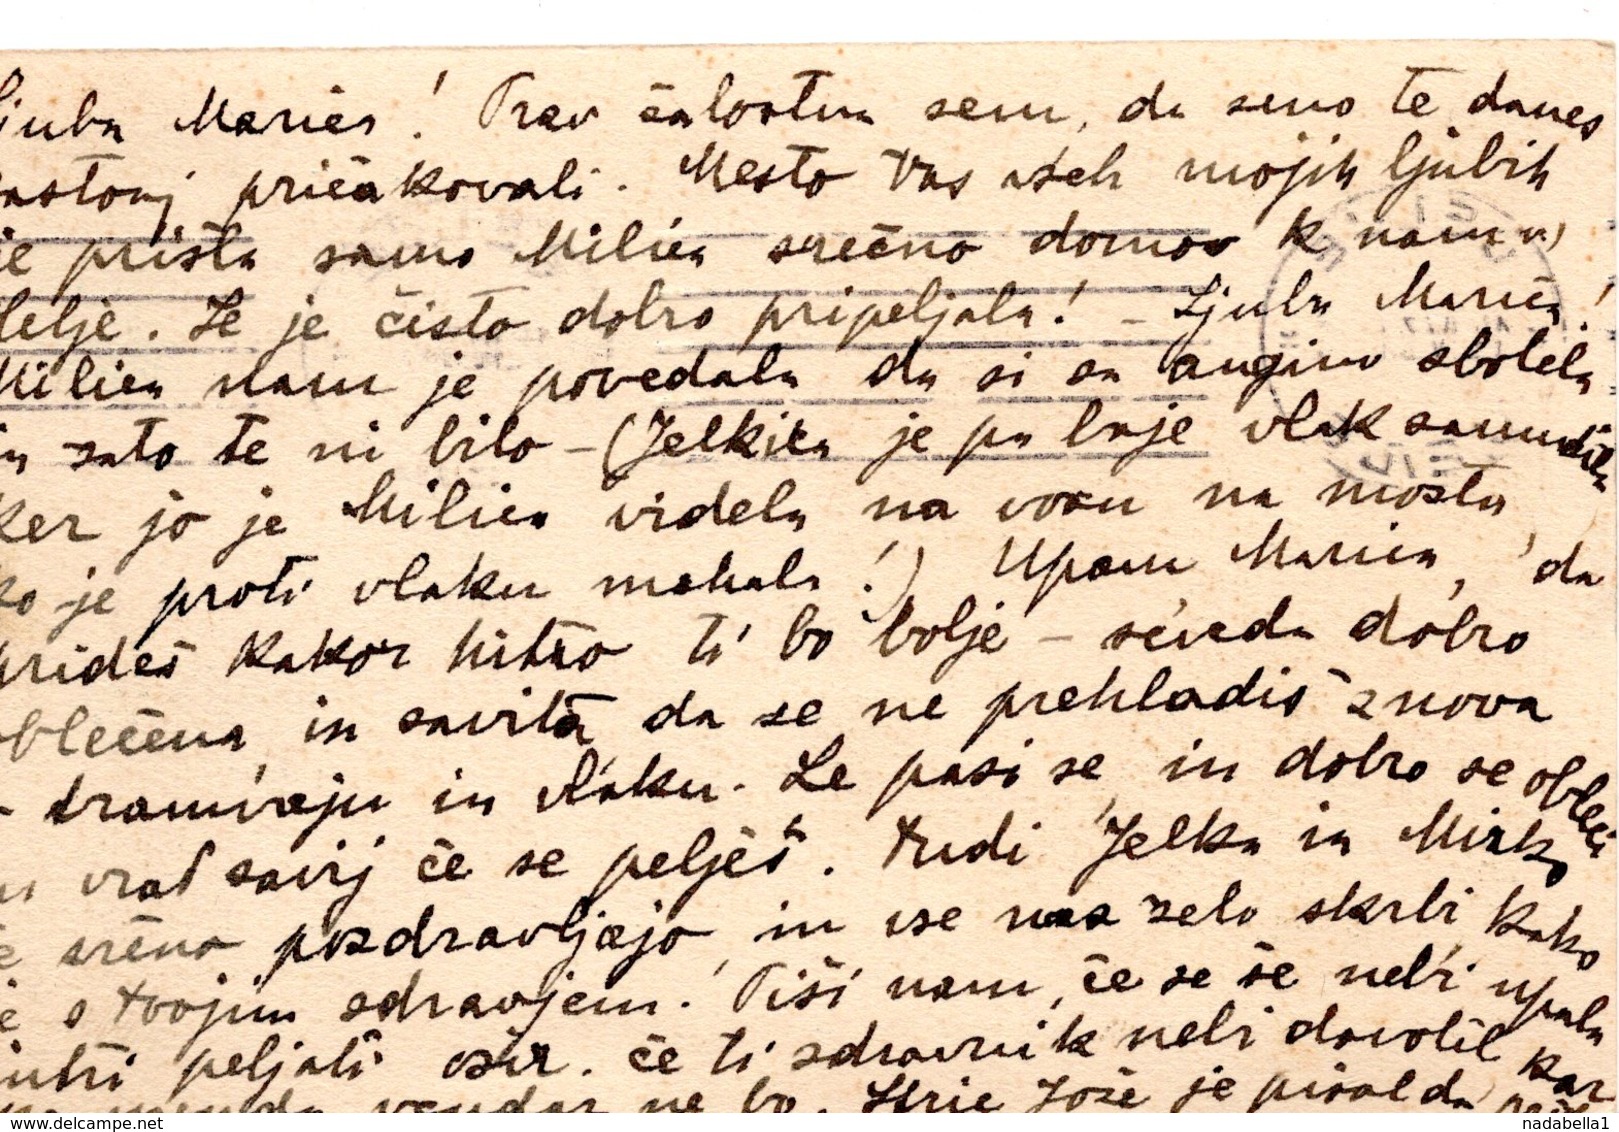 ljuba Marica! Prav žalostna sem, da smo te danes
zastonj pričakovali. Mesto vas vseh mojih ljubih
je prišla samo Milica srečno domov k nam v
Celje. Se je čisto dobro pripeljala! – Ljuba Marica!
Milica nam je povedala da si za angino zbolela
in zato te ni bilo – (Jelkica je pa baje vlak zamudila
ker jo je Milica videla na vozu na mostu
ko je proti vlaku mahala!) Upam Marica, da
prideš kakor hitro ti bo bolje – seveda dobro
oblečena in zavita da se ne prehladiš znova
v tramvaju in vlaku. Le pazi se in dobro se obleci
in vrat zavij če se pelješ. Tudi Jelka in Mirko
te srčno pozdravljajo in vse nas zelo skrbi kako
je s tvojim zdravjem! Piši nam, če se še nebi upala
jutri peljati ozir. če ti zdravnik nebi dovolil kar
menda vendar ne bo. Stric Jože je pisal da
nadabella1